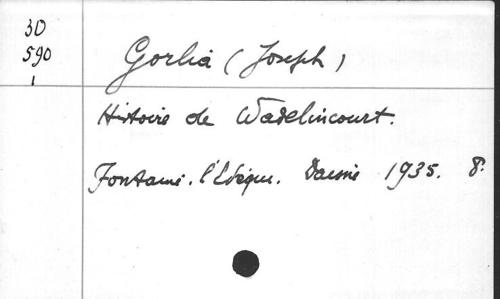 30
590
1
Gorlia (Joseph)
Histoire de Wadelincourt.
Fontaine. l'Evêque. Daine 1935. 8.